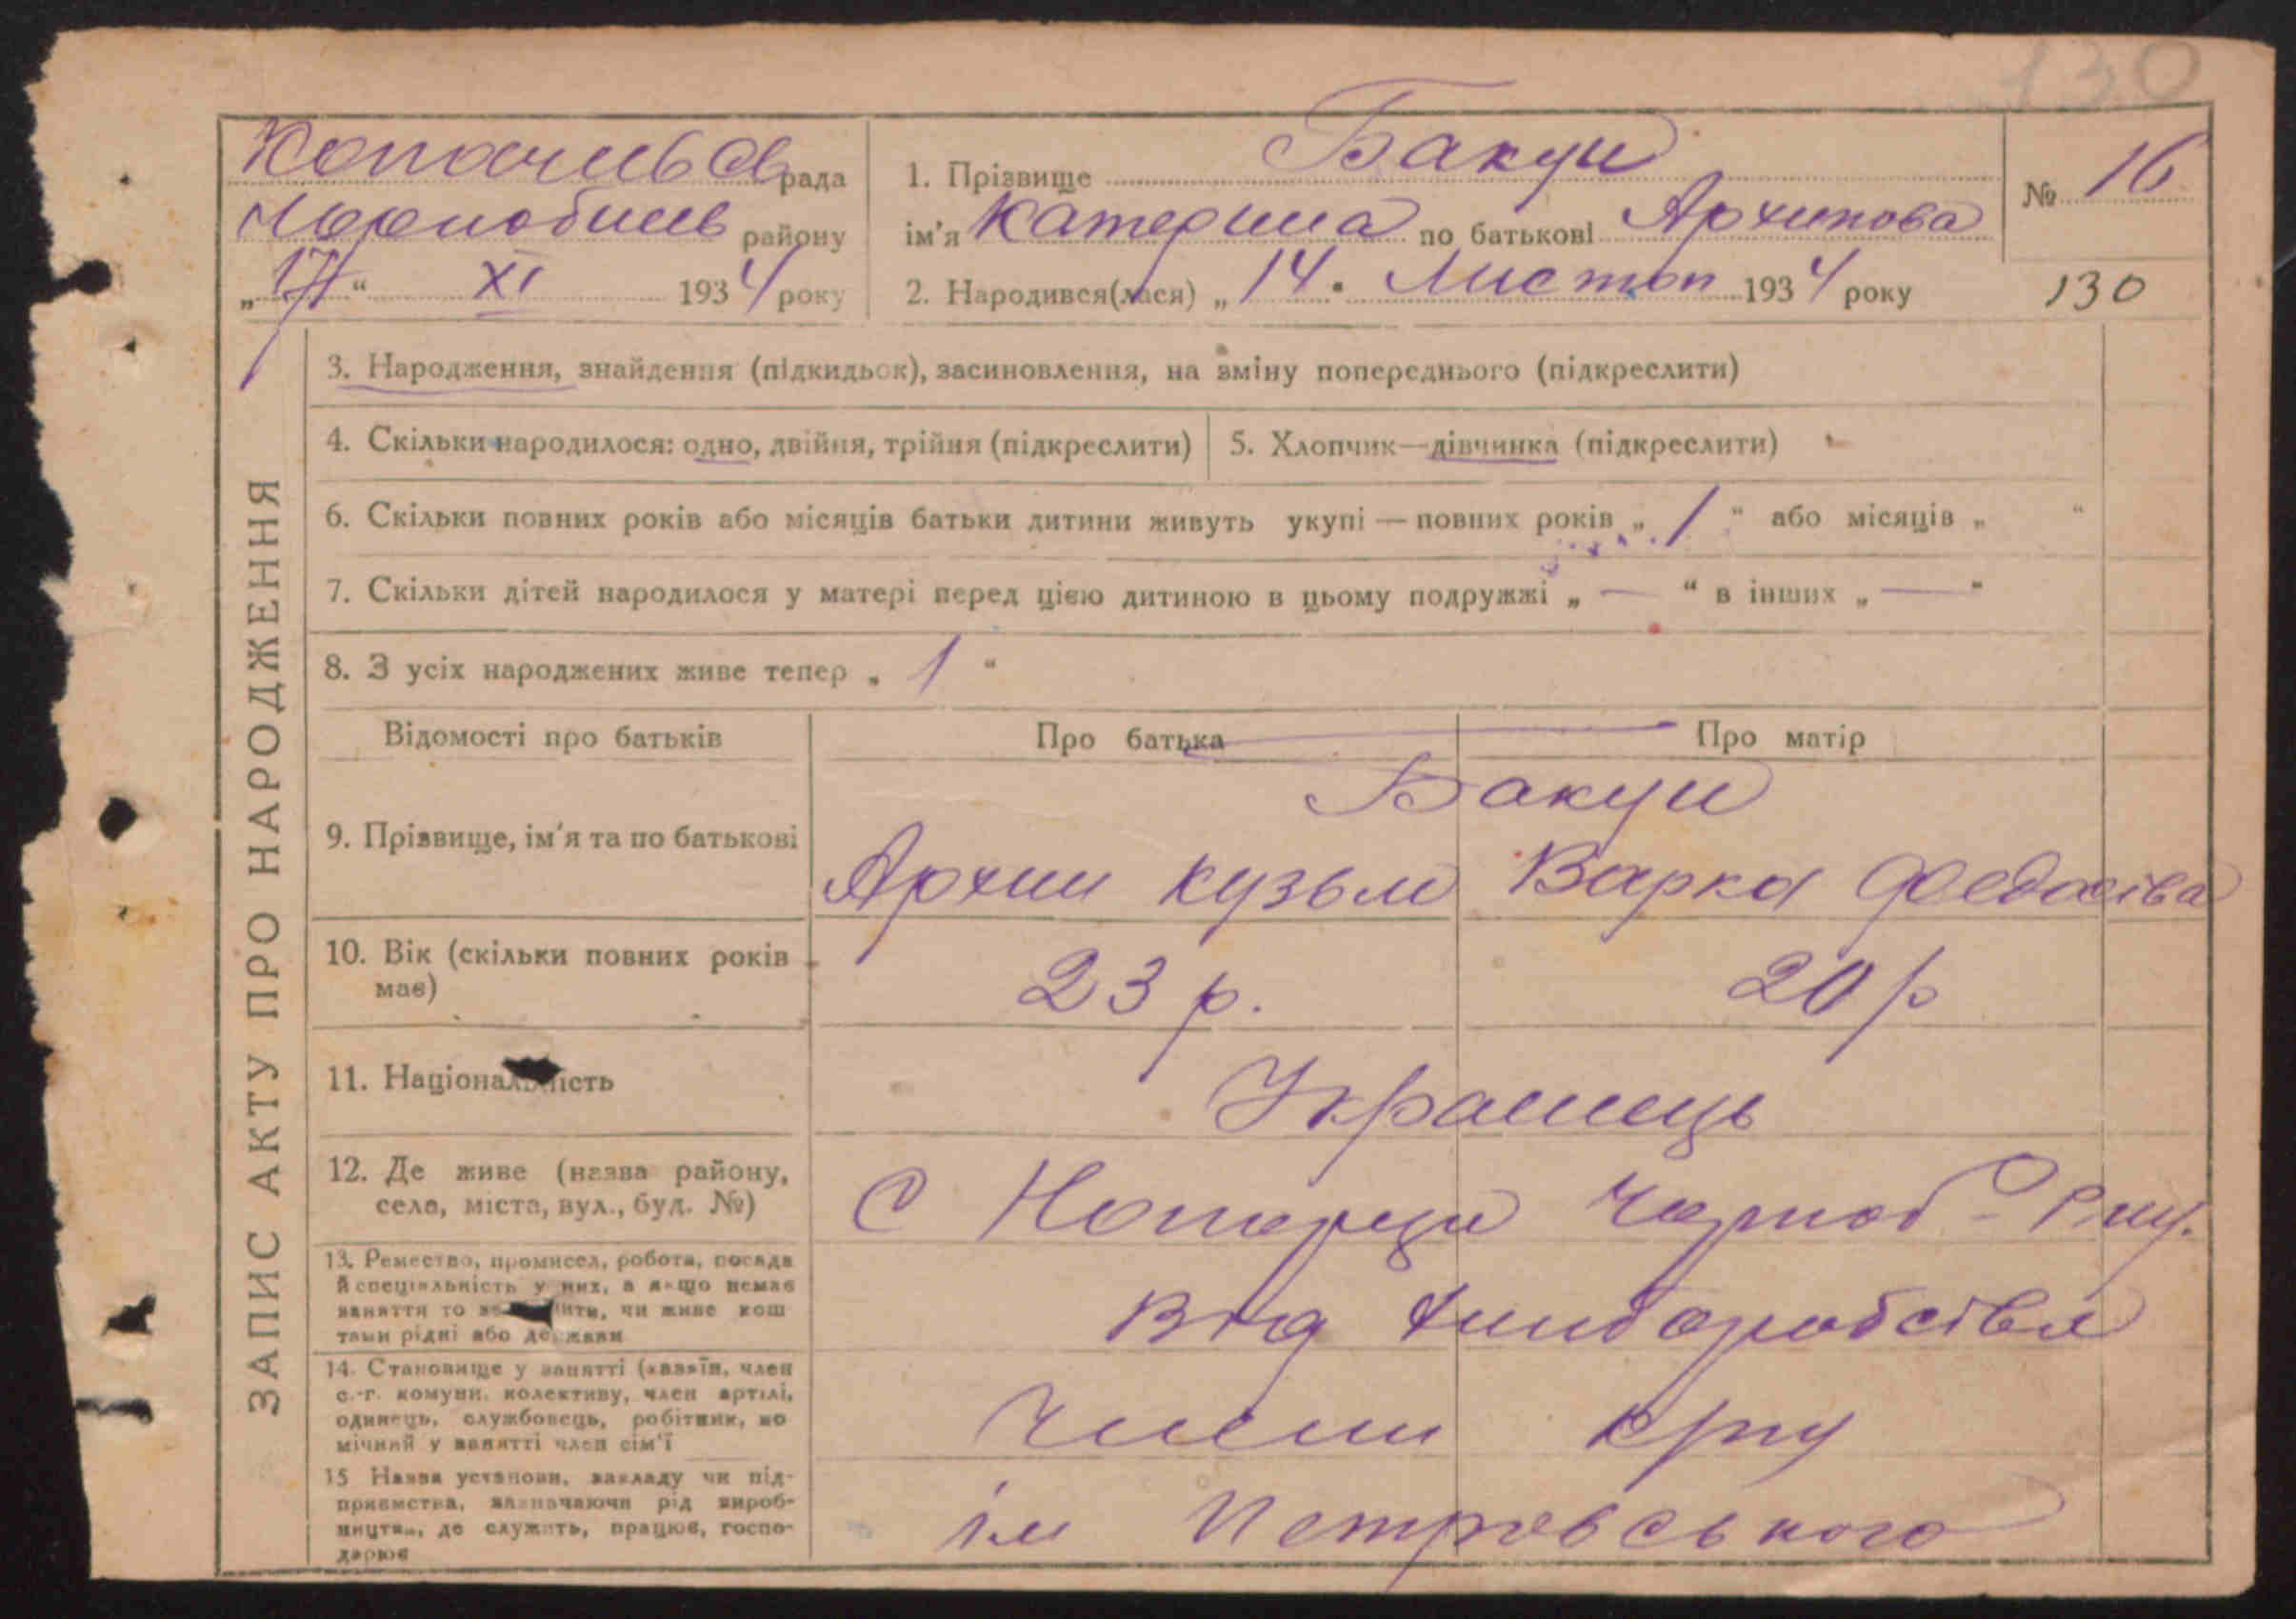 130
Копачив С рада
Чорнобилв району
„17“ XI 1934 року
1. Прізвище Бакун
ім'я Катерина по батькові Архипова
2. Народився(лася) „14“ Листоп 1934 року
№ 16
130
ЗАПИС АКТУ ПРО НАРОДЖЕННЯ
3. Народження, знайдення (підкидьок), засиновлення, на зміну попереднього (підкреслити)
4. Скільки народилося: одно, двійня, трійня (підкреслити)
5. Хлопчик—дівчинка (підкреслити)
6. Скільки повних років або місяців батьки дитини живуть укупі — повних років „1“ або місяців „ “
7. Скільки дітей народилося у матері перед цією дитиною в цьому подружжі „—“ в інших „—“
8. З усіх народжених живе тепер „1“
Відомості про батьків
Про батька
Про матір
Бакун
9. Прізвище, ім'я та по батькові
Архип Кузьм
Варка Федосіва
10. Вік (скільки повних років
має)
23 р.
20 р
11. Національність
Украинець
12. Де живе (назва району,
села, міста, вул., буд. №)
С
13. Ремество, промисел, робота, посада
й спеціяльність у них, а якщо немає
заняття то чи живе кош
тами рідні або держави
14. Становище у занятті (хазяїн, член
с.-г. комуни, колективу, член артілі,
одинець, службовець, робітник, по
мічний у занятті член сім'ї
Член
15 Назва установи, закладу чи під-
приємства, зазначаючи рід вироб-
ництва, де служить, працює, госпо-
дарює
ім Петровського